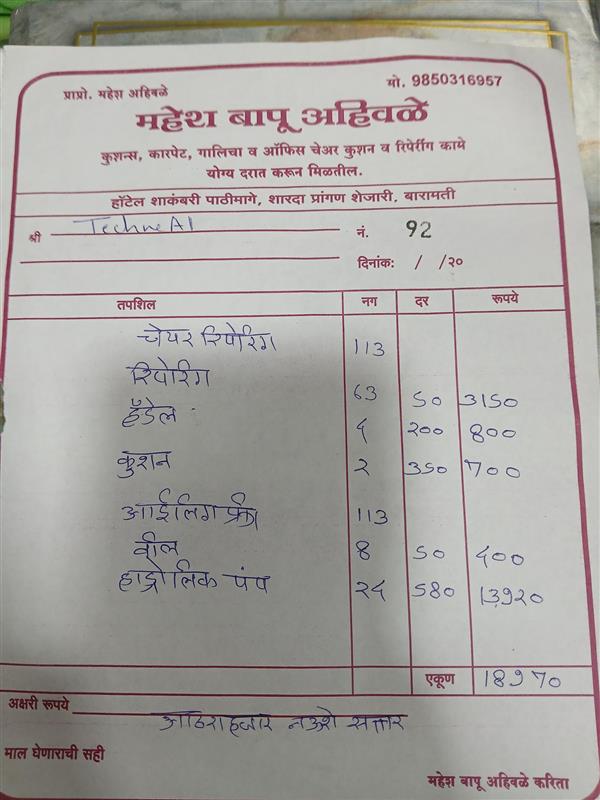 प्राप्रो. महेश अहिवळे
मो. 9850316957
महेश बापू अहिवळे
कुशन्स, कारपेट, गालिचा व ऑफिस चेअर कुशन व रिपेरींग कामे
योग्य दरात करून मिळतील.
हॉटेल शाकंबरी पाठीमागे, शारदा प्रांगण शेजारी, बारामती
श्री Techne AI नं. 92
दिनांक: / /२०
तपशिल नग दर रूपये
चेयर रिपेरिंग 113
रिपेरिंग 63 50 3150
हँडेल 4 200 800
कुशन 2 350 700
आईलिंग फ्री 113
वील 8 50 400
हाड्रोलिक पंप 24 580 13920
एकूण 18970
अक्षरी रूपये आठराहजार नऊशे सत्तर
माल घेणाराची सही
महेश बापू अहिवळे करिता